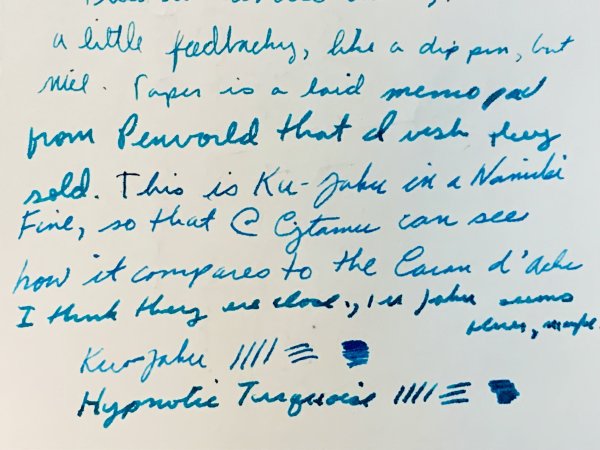 a little feedbacky, like a dip pen, but
nice. Paper is a laid memo pad
from Penworld that I wish they
sold. This is Ku-Jaku in a Namiki
Fine, so that @ can see
how it compares to the Caran d'Ache
I think they are close., Jaku seems
maybe.
Ku-Jaku
Hypnotic Turquoise